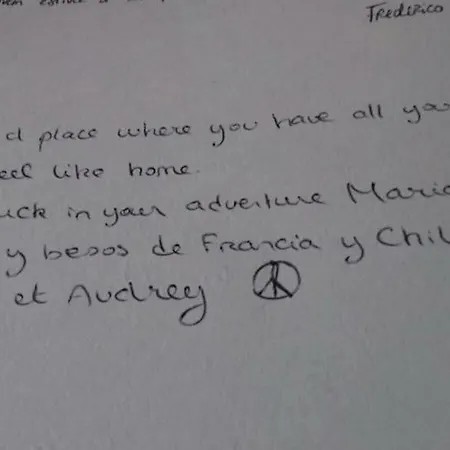 Frederico
d place where you have all you
eel like home.
uck in your adventure Maria
y besos de Francia y Chil
et Audrey